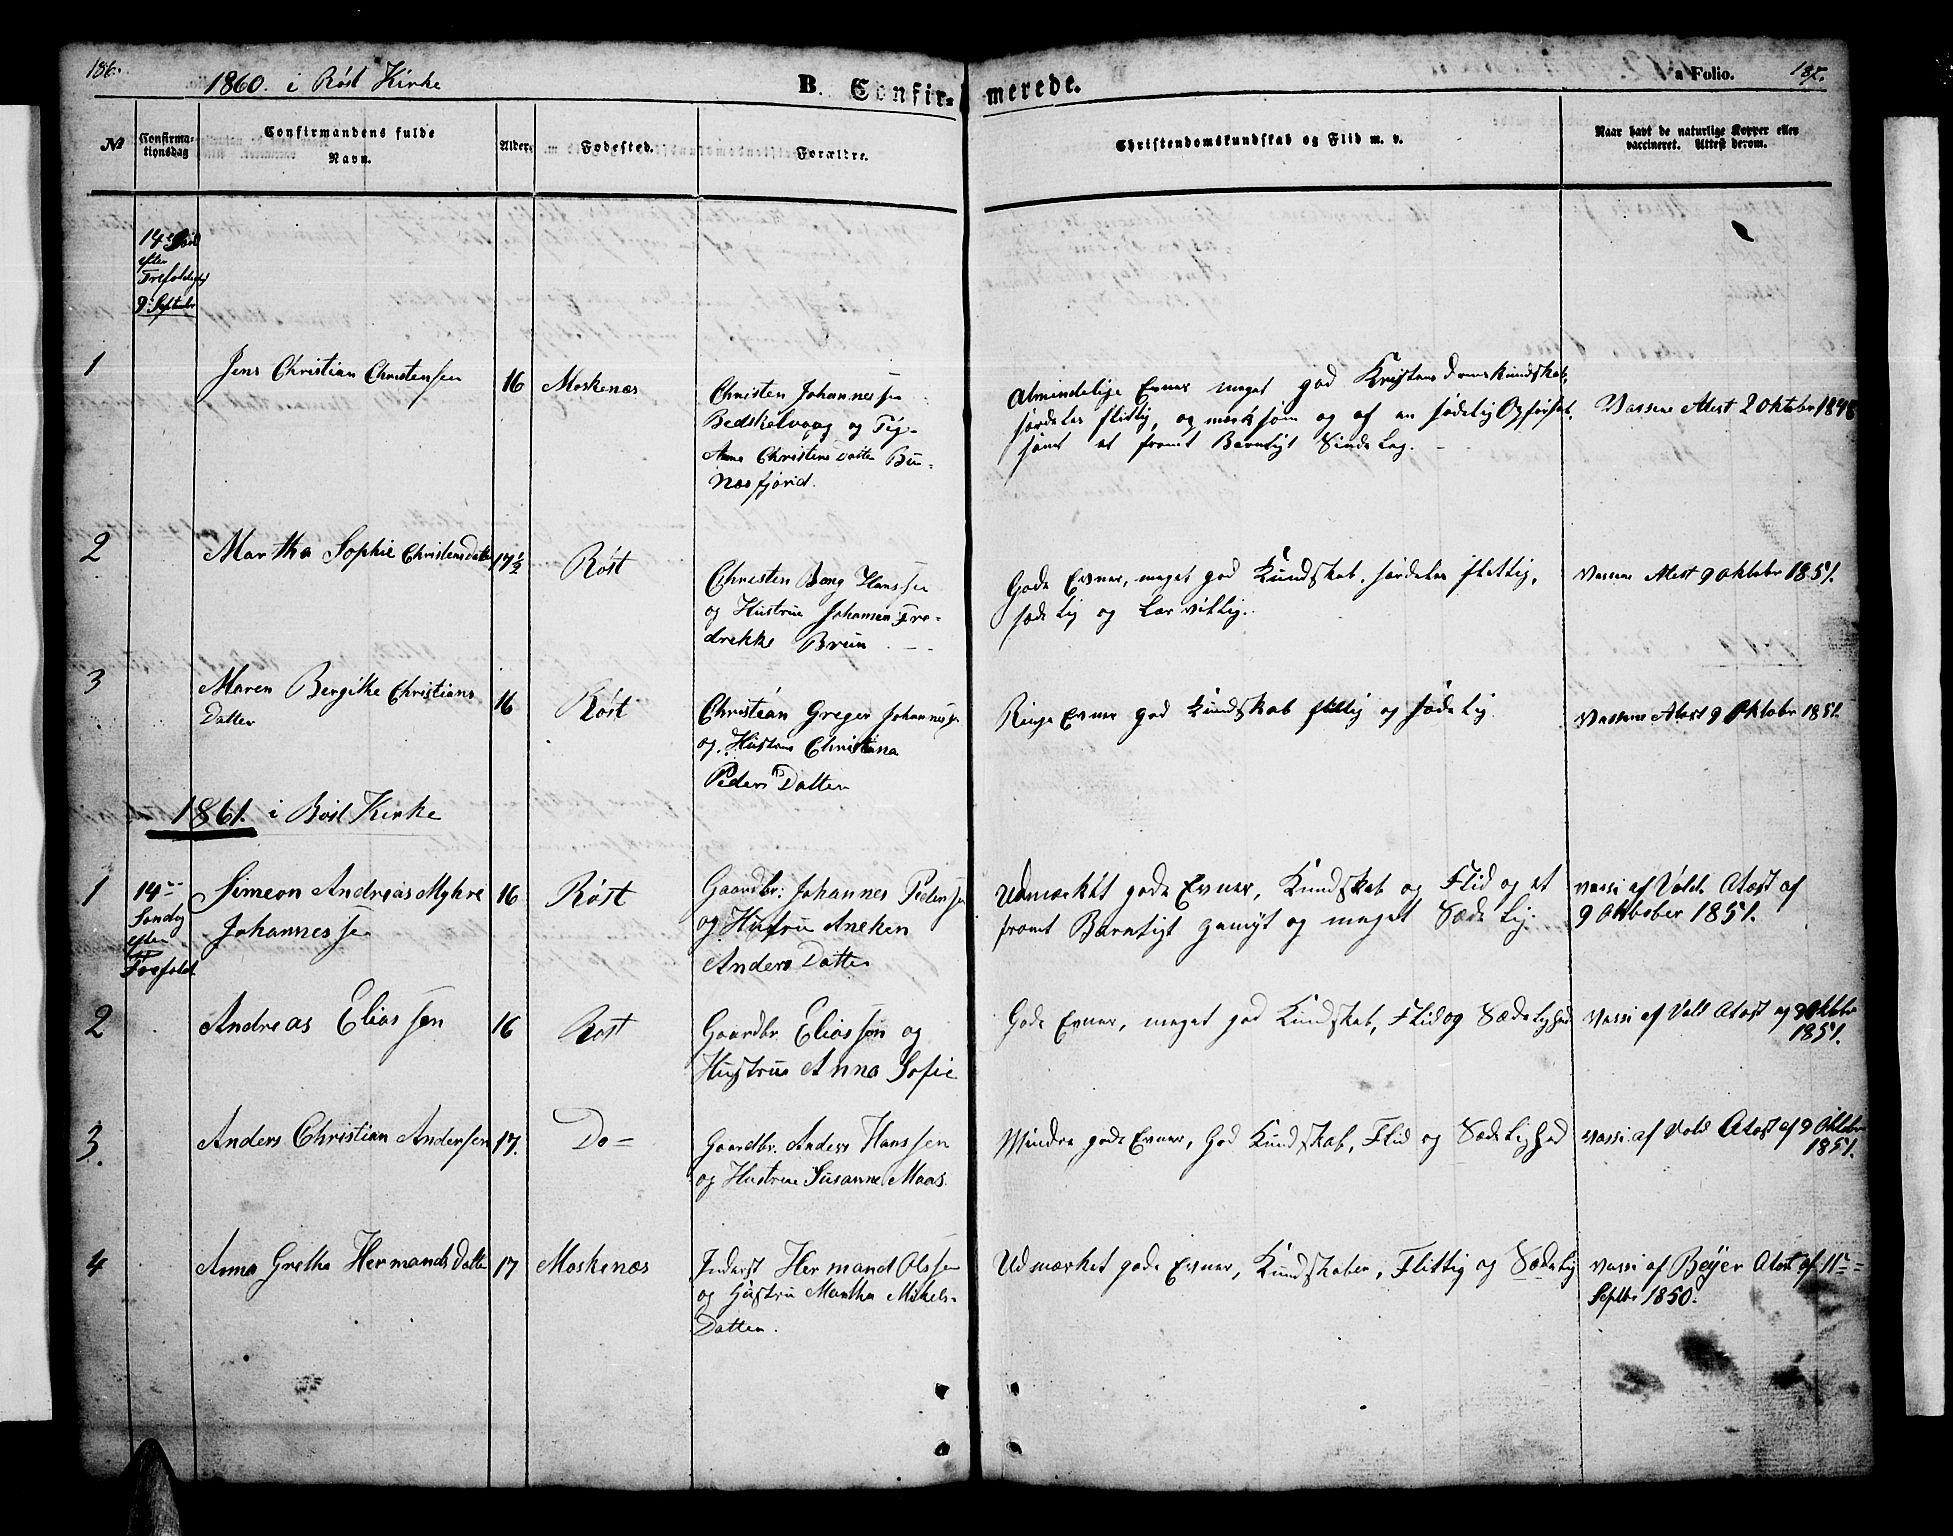 186.
1860. i Røst Kirke
B. Confir-
merede.
a Folio.
187.
No
Confirma-
tionsdag
Confirmandens fulde
Navn.
Alder.
Fødested.
Forældre.
Christendomskundskab og Flid m. v.
Naar havt de naturlige Kopper eller
vaccineret. Attest derom.
14de
efter
Trefoldighed
9. Septembr
1
Jens Christian Christensen
16
Moskenæs
Christen Johannessen
og Pige
Anna Christens Datter Bu-
næsfjorid.
Almindelige Evner meget god Kristendomskundskab,
særdeles flittig, og
samt et fromt Barnligt Sindelag.
Vassene Atest 2 Oktobr 1848
2
Martha Sophie Christens Datter
17½
Røst
Christen Bang Hanssen
og Hustrue Johanna Fre-
drekke Brun
Gode Evner, meget god Kundskab, særdeles flittig,
sædelig og Lærvillig.
Vassene Atest 9 Oktobr 1851.
3
Maren Bergithe Christians
Datter
16
Røst
Christian Greger Johannesse
og Hustrue Christiana
Peders Datter
Ringe Evner god Kundskab flittig og sædelig
Vassene Atest 9 Oktobr 1851.
1861. i Røst Kirke
1
14de
Søndag
efter
Trefold.
Simeon Andreas Myhre
Johannessen
16
Røst
Gaardbr. Johannes Pedersen
og Hustru Aneken
Anders Datter
Udmærket gode Evner, Kundskab og Flid og et
fromt Barnligt gemyt og meget Sædelig.
vassi af Vold Atæst af
9 Oktober 1851.
2
Andreas Eliassen
16
Røst
Gaardbr. Eliassen og
Hustrue Anna Sofie
Gode Evner, meget god Kundskab, Flid og Sædelighed
Vassi af Vold Atæst af 9 Oktbr
1851.
3.
Anders Christian Andersen
17.
Do =
Gaardbr. Anders Hanssen
og Hustrue Susanne Maas.
Mindre gode Evner, God Kundskab, Flid og Sædelighed
Vassi af Vold Atæst af 9 Oktbr
1851.
4
Anna Gretha Hermands Datter
17
Moskenæs
Inderst Hermand Olsen
og Hustru Martha Mikels-
Datter.
Udmærket gode Evner, Kundskaber, Flittig og Sædelig
vassi af Beyer Atæst af 11te
Septbr 1850.